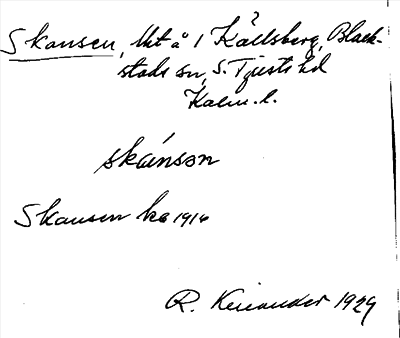 Skansen, lht å 1 Källsberg, Black-
stads sn, S. Tjusts hd
Kalm. l.
skánsən
Skansen ka 1916
R. Kenander 1929